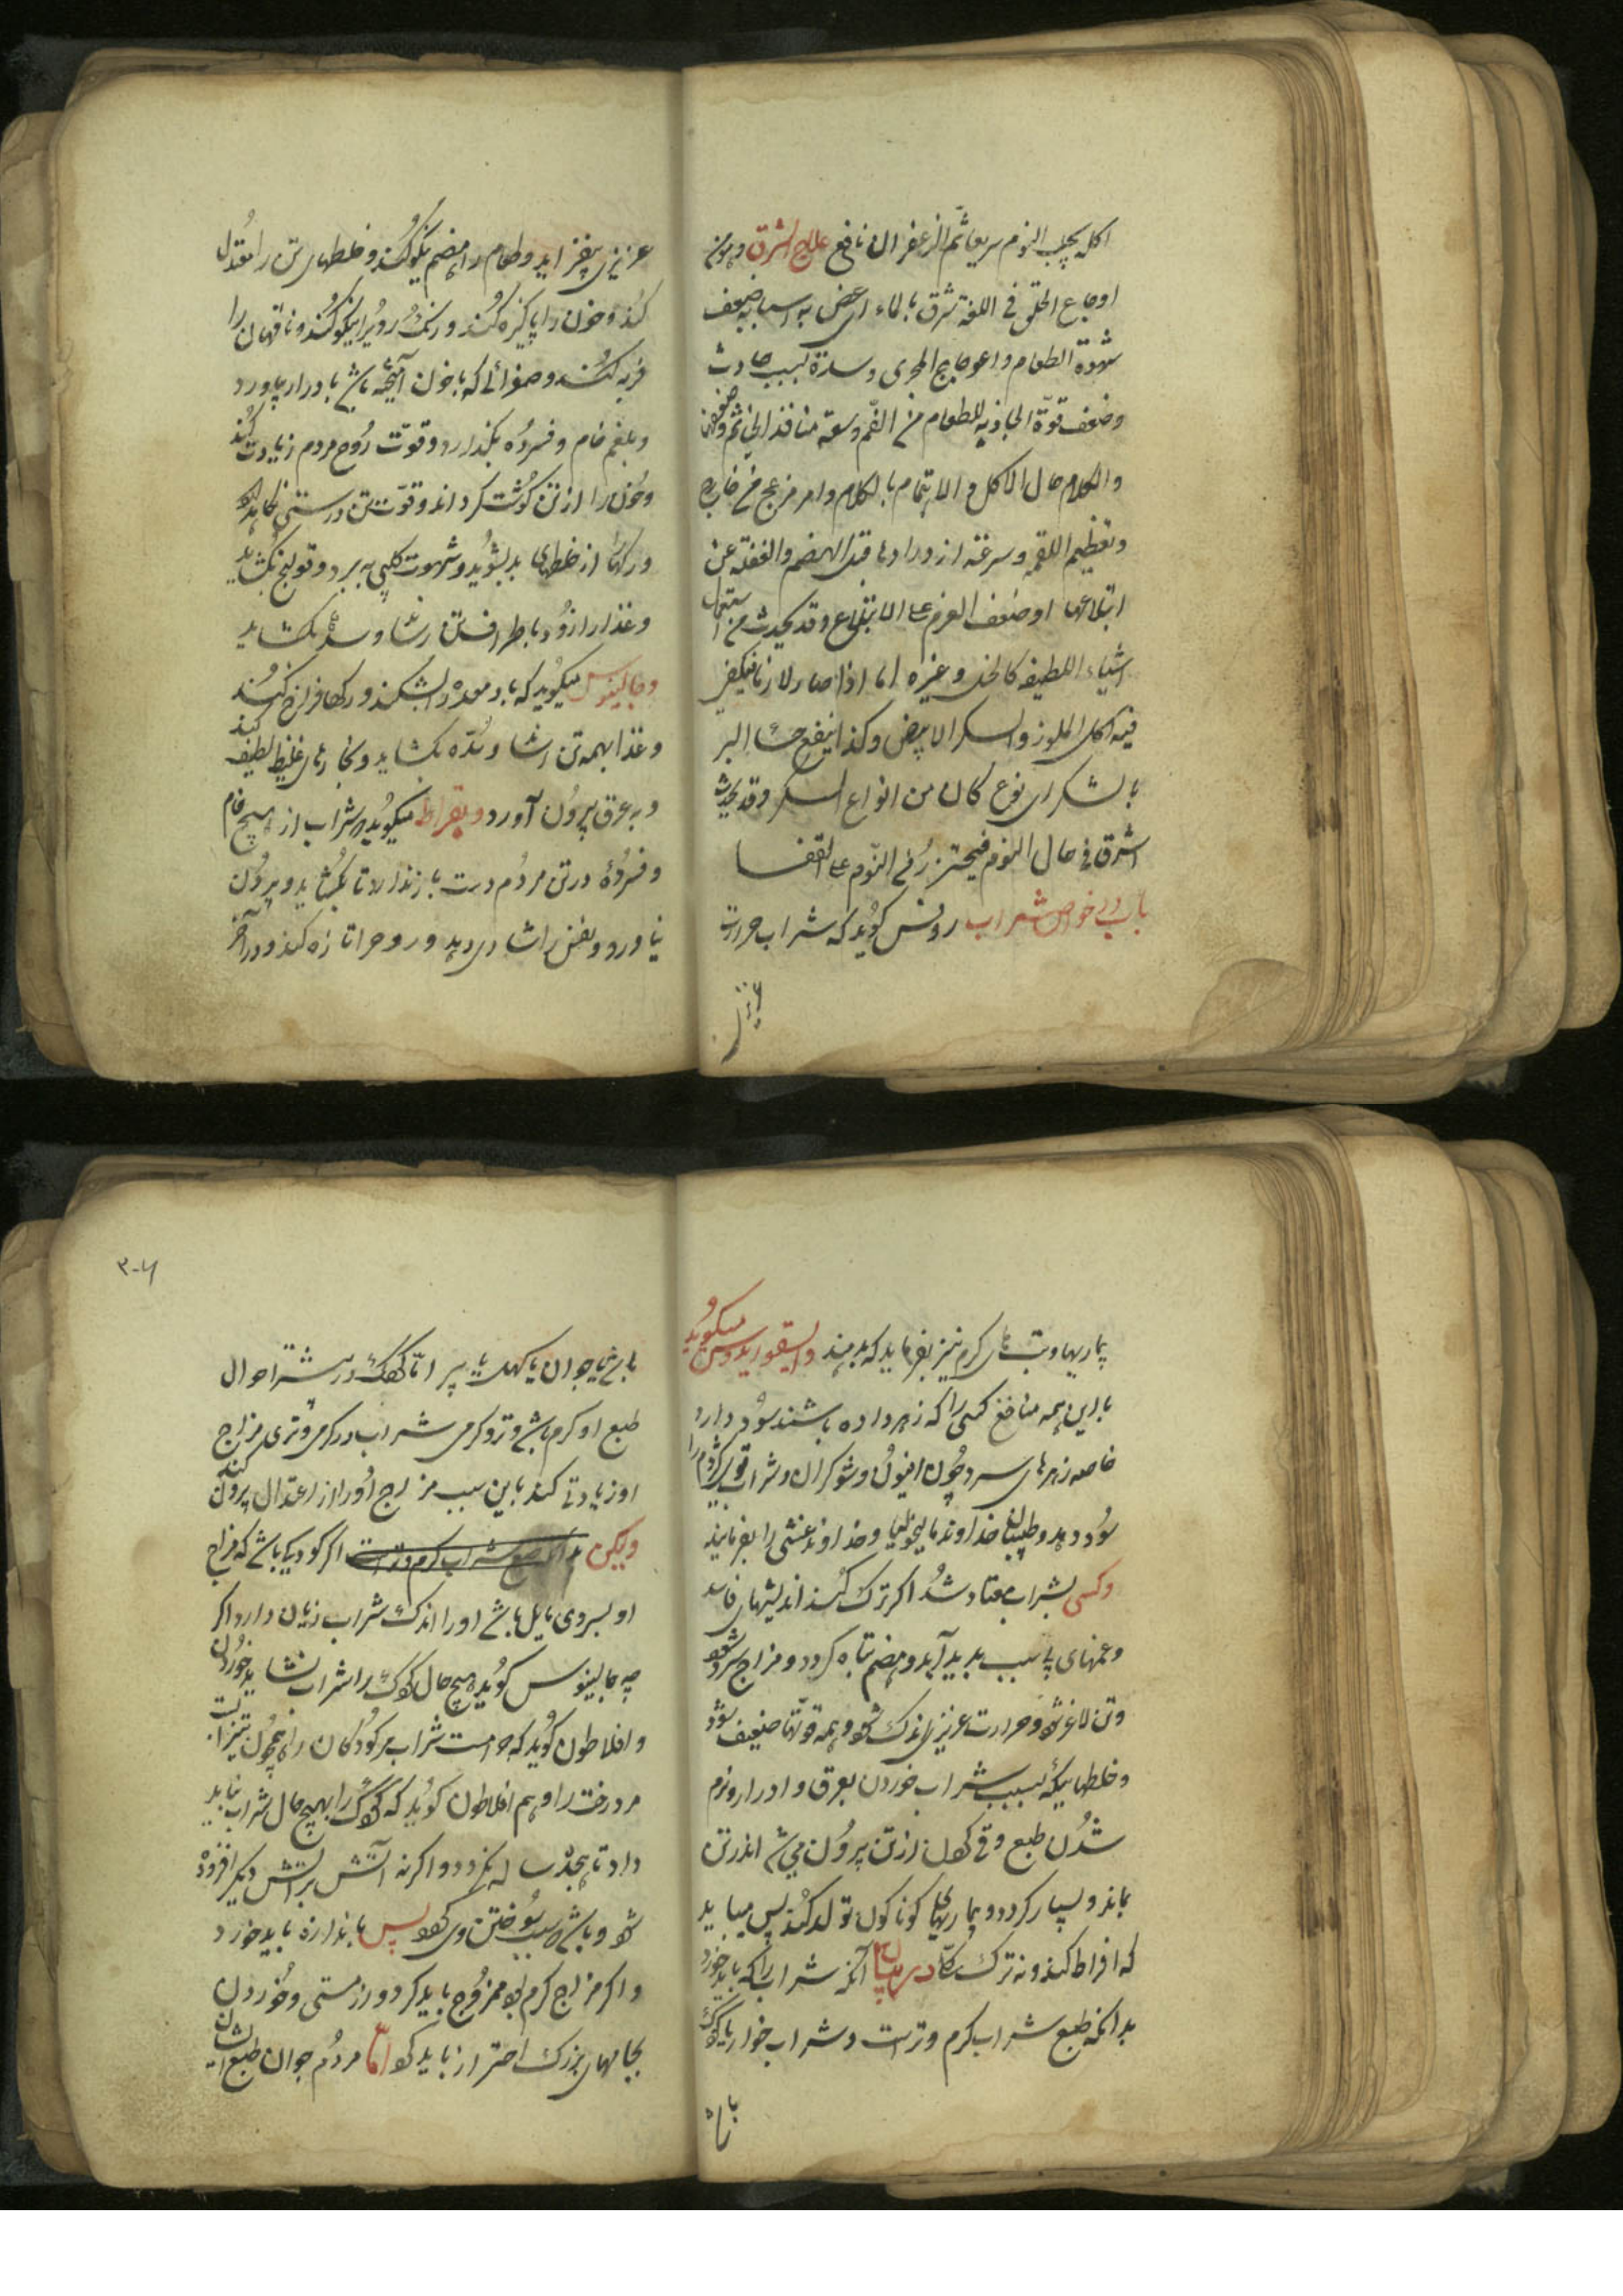 اکله یجلب النوم سریعا شم الزعفران نافع علاج الشرق وهو من
اوجاع الحلق فی اللغة شرق بالماء ای غص به اسبابه ضعف
شهوة الطعام واعوجاج المجری وسدة بسبب حادث
وضعف قوة الجاذبه للطعام من الفم وسعة منافذ
والکلام حال الاکل والاهتمام بالکلام وامر مزعج من خارج
وتعظیم اللقمه وسرعة ازدرادها قبل الهضم والغفلة عن
ابتلاعها او ضعف العزم علی الابتلاع وقد یحدث من استعمال
اشیاء اللطیفه کالخل وغیره اما اذا صار لازما فیکفی
فیه اکل اللوز والسکر الابیض وکذا ینفع حساء البر
بالسکر ای نوع کان من انواع السکر وقد یحدث
الشرق فی حال النوم فیحترز من النوم علی القفا
باب در خواص شراب روفس گوید که شراب حرارت
عزیزی
عزیزی بیفزاید و طعام را هضم نیکو کند و خلطهای تن را معتدل
کند و خون را پاکیزه کند و رنگ روی را نیکو کند و ناقهان را
فربه کند و صفرائی که با خون آمیخته باشد بادرار بیاورد
و بلغم خام و فسرده بگذارد و قوت روح مردم زیادت کند
و خون را از تن گوشت گرداند و قوت تن درستی نگاهدارد
و رگها از خلطهای بد بشوید و شهوت کلبی به برد و قولنج بگشاید
و غذا را زود باطراف تن رساند و سده بگشاید
و جالینوس میگوید که باد معده را بشکند و رگها فراخ کند
و غذا بهمه تن رساند و سده بگشاید و بخارهای غلیظ لطیف کند
و به عرق بیرون آورد و بقراط میگوید شراب از هیچ خام
و فسرده در تن مردم دست باز ندارد تا بگشاید و بیرون
نیاورد و نفس را شادی دهد و روح را تازه کند و در آخر
بیماریها و تبهای گرم نیز بفرماید که بدهند و دیسقوریدوس میگوید
با این همه منافع کسی را که زهر داده باشند سود دارد
خاصه زهرهای سرد چون افیون و شوکران و شراب قوی کژدم را
سود دهد و طبیبان خداوند مالیخولیا و خداوند غشی را بفرمایند
و کسی بشراب معتاد شد اگر ترک کند اندیشهای فاسد
و غمهای با سبب پدید آید و هضم تباه گردد و مزاج سرد شود
و تن لاغر شود و حرارت عزیزی اندک شود و همه قوتها ضعیف شود
و خلطهائیکه بسبب شراب خوردن بعرق و ادرار و نرم
شدن طبع و قی کردن از تن بیرون می شد اندر تن
بماند و بسیار گردد و بیماریهای گوناگون تولد کند پس میباید
که افراط کند و نه ترک کلا در بیان آنکه شراب را که باید خورد
بدانکه طبع شراب گرم و تر است و شراب خوار یا کودک
باشد
۳۰۶
باشد یا جوان یا کهل یا پیر اما کودک در بیشتر احوال
طبع او گرم باشد و تر و گرمی شراب در گرمی و تری مزاج
او زیادتی کند باین سبب مزاج او را از اعتدال بیرون کند
ولیکن بدانکه طبع شراب گرم و تر است اگر کودکی باشد که مزاج
او بسردی مایل باشد او را اندک شراب زیان دارد اگر
چه جالینوس گوید هیچ حال کودک را شراب نشاید خوردن
و افلاطون گوید که حرامست شراب مر کودکان را همچون تیز آب
مر درخت را و هم افلاطون گوید که کودک را بهیچ حال شراب نباید
داد تا هجده ساله نگردد و اگر نه آتش بر آتش دیگر افزوده
شود و باشد سبب سوختن وی گردد پس باندازه باید خورد
و اگر مزاج گرم بود ممزوج باید کرد و از مستی و خوردن
بجامهای بزرگ احتراز باید کرد اما مردم جوان طبع ایشان